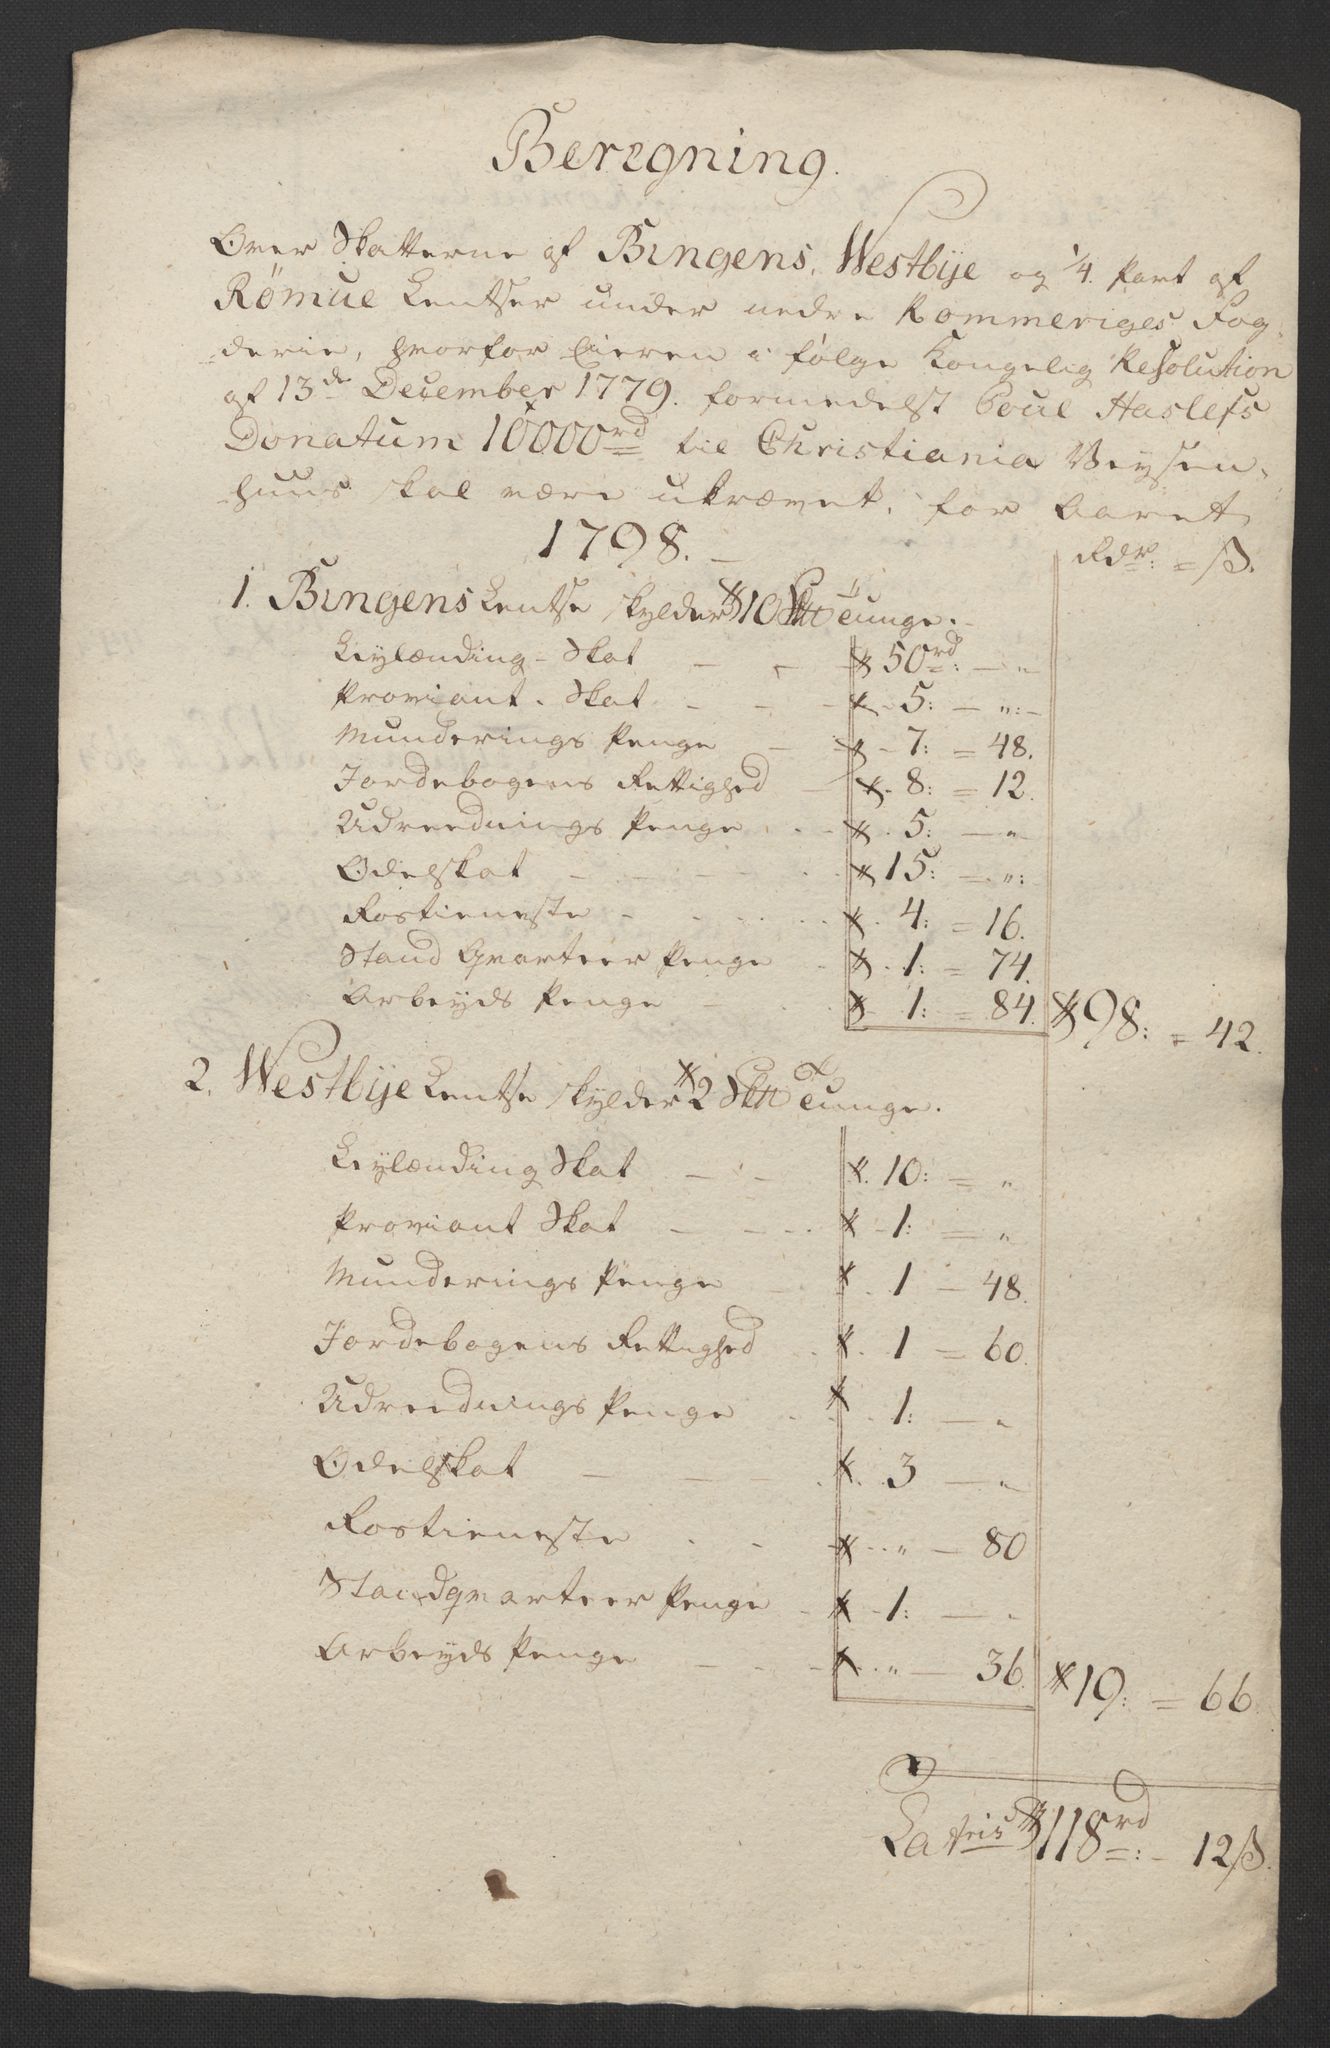 Beregning.
Over Skatterne af Bingens, Westbye og 1/4 Part af
Römue Lentser under nedre Rommeriges Fog-
derie, hvorfor Eieren i følge Kongelig Resolution
af 13de December 1779. formedelst Poul Haslefs
Donatum 10000rd til Christiania Veysen-
huus skal være ukrævet, for Aaret
1798.
Rdr: = ß.
1. Bingens Lentse skylder 10 Tunge.
Leylænding-Skat 50rd: — "
Proviant-Skat 5: — ":
Munderings Penge 7: = 48.
Jordebogens Rettighed 8: = 12.
Udreednings Penge 5: — "
Odelskat 15: = ":
Rostieneste 4: = 16.
Stand Qvarteer Penge 1: = 74.
Arbeyds Penge 1: = 84. 98: = 42.
2. Westbye Lentse skylder 2 Tunge.
Leylænding Skat 10: = "
Proviant Skat 1: = "
Munderings Penge 1 — 48.
Jordebogens Rettighed 1 = 60.
Udreednings Penge 1: — "
Odelskat 3 — "
Rostieneste " — 80
Standqvarteer Penge 1: — "
Arbeyds Penge " — 36. 19: = 66.
Lateris 118rd: — 12ß.